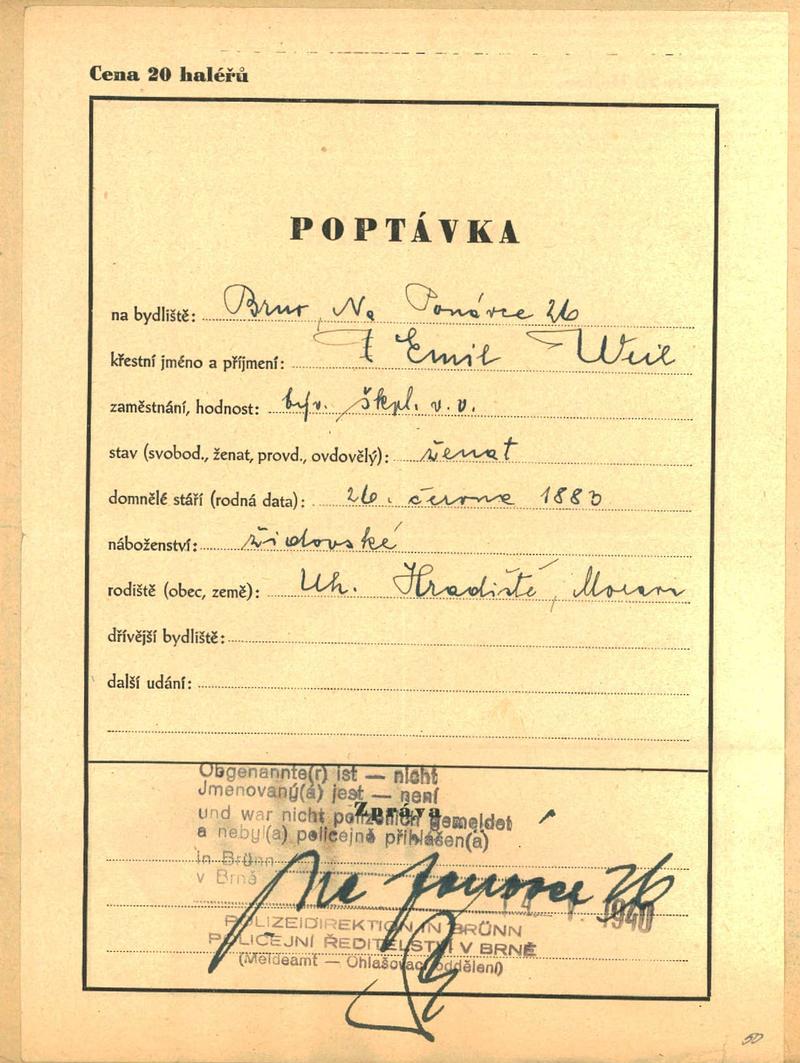 Cena 20 haléřů
POPTÁVKA
na bydliště: Brno, Na Ponávce 26
křestní jméno a příjmení: Emil Weil
zaměstnání, hodnost: býv. škpl. v. v.
stav (svobod., ženat, provd., ovdovělý): ženat
domnělé stáří (rodná data): 26. června 1883
náboženství: židovské
rodiště (obec, země): Uh. Hradiště, Morava
dřívější bydliště:
další udání:
Obgenannte(r) ist — nicht
Jmenovaný(á) jest — není
Zpráva
und war nicht polizeilich gemeldet
a nebyl(a) policejně přihlášen(a)
in Brünn
v Brně
Na Ponávce 26
1940
POLIZEIDIREKTION IN BRÜNN
POLICEJNÍ ŘEDITELSTVÍ V BRNĚ
(Meldeamt — Ohlašovací oddělení)
50